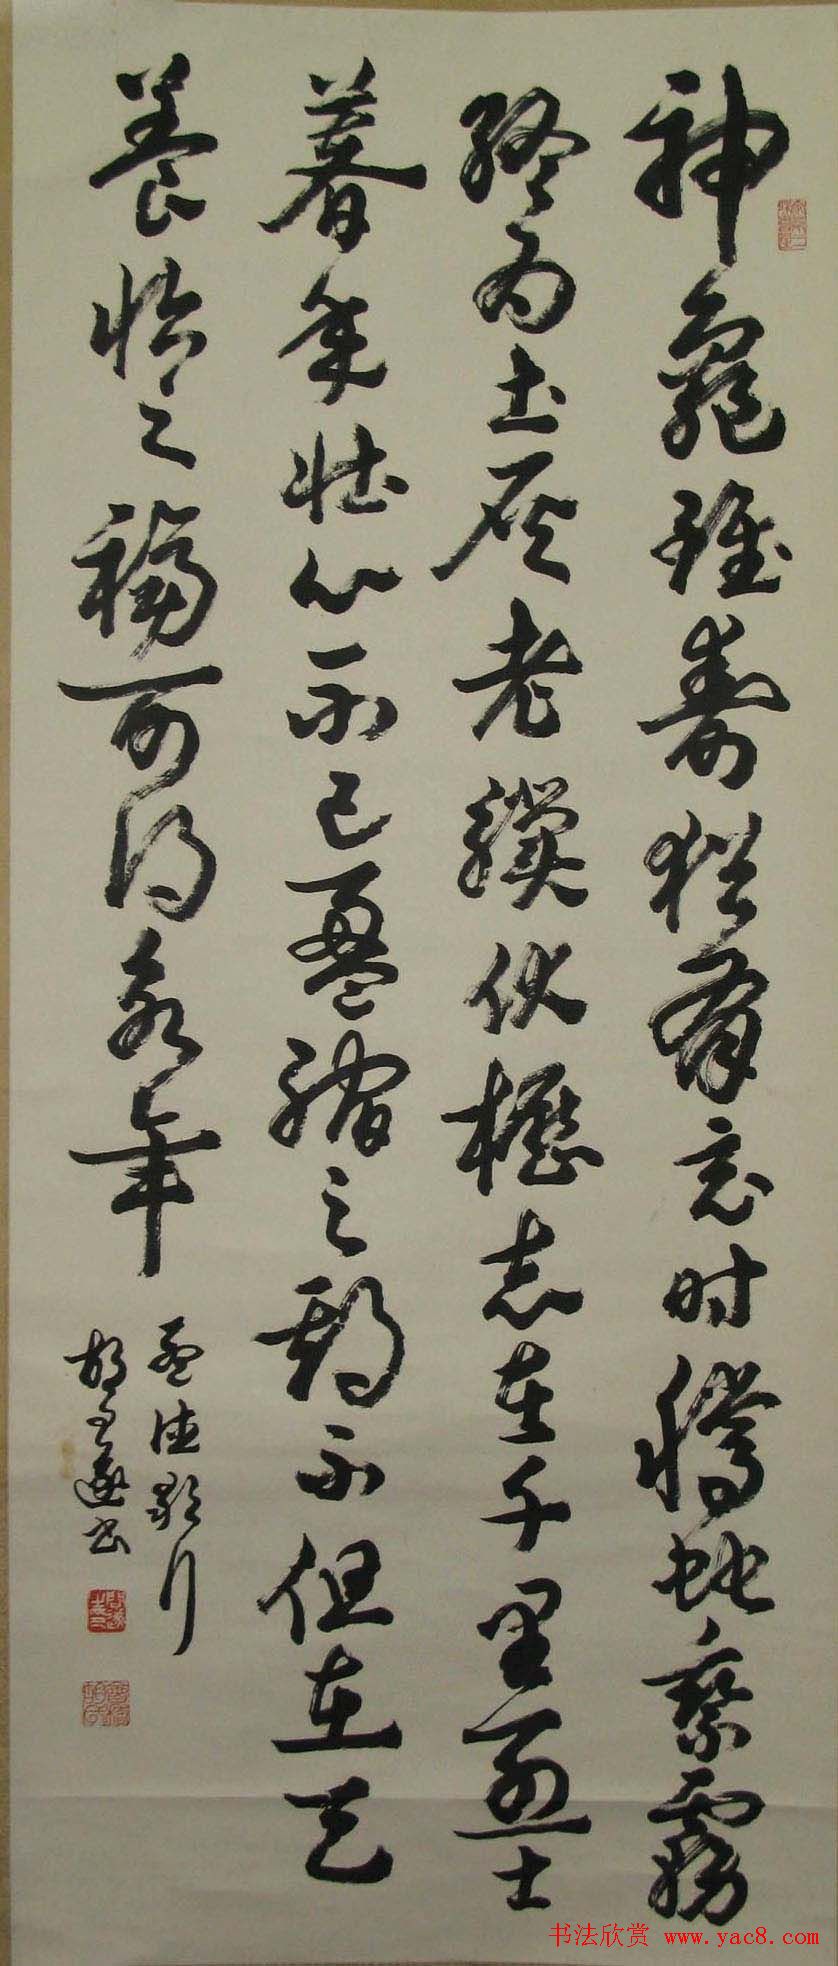 神龜雖壽猶有竟時騰蛇乘霧
終為土灰老驥伏櫪志在千里烈士
暮年壯心不已盈縮之期不但在天
養怡之福可得永年
孟德歌行
胡問遂書
书法欣赏 www.yac8.com